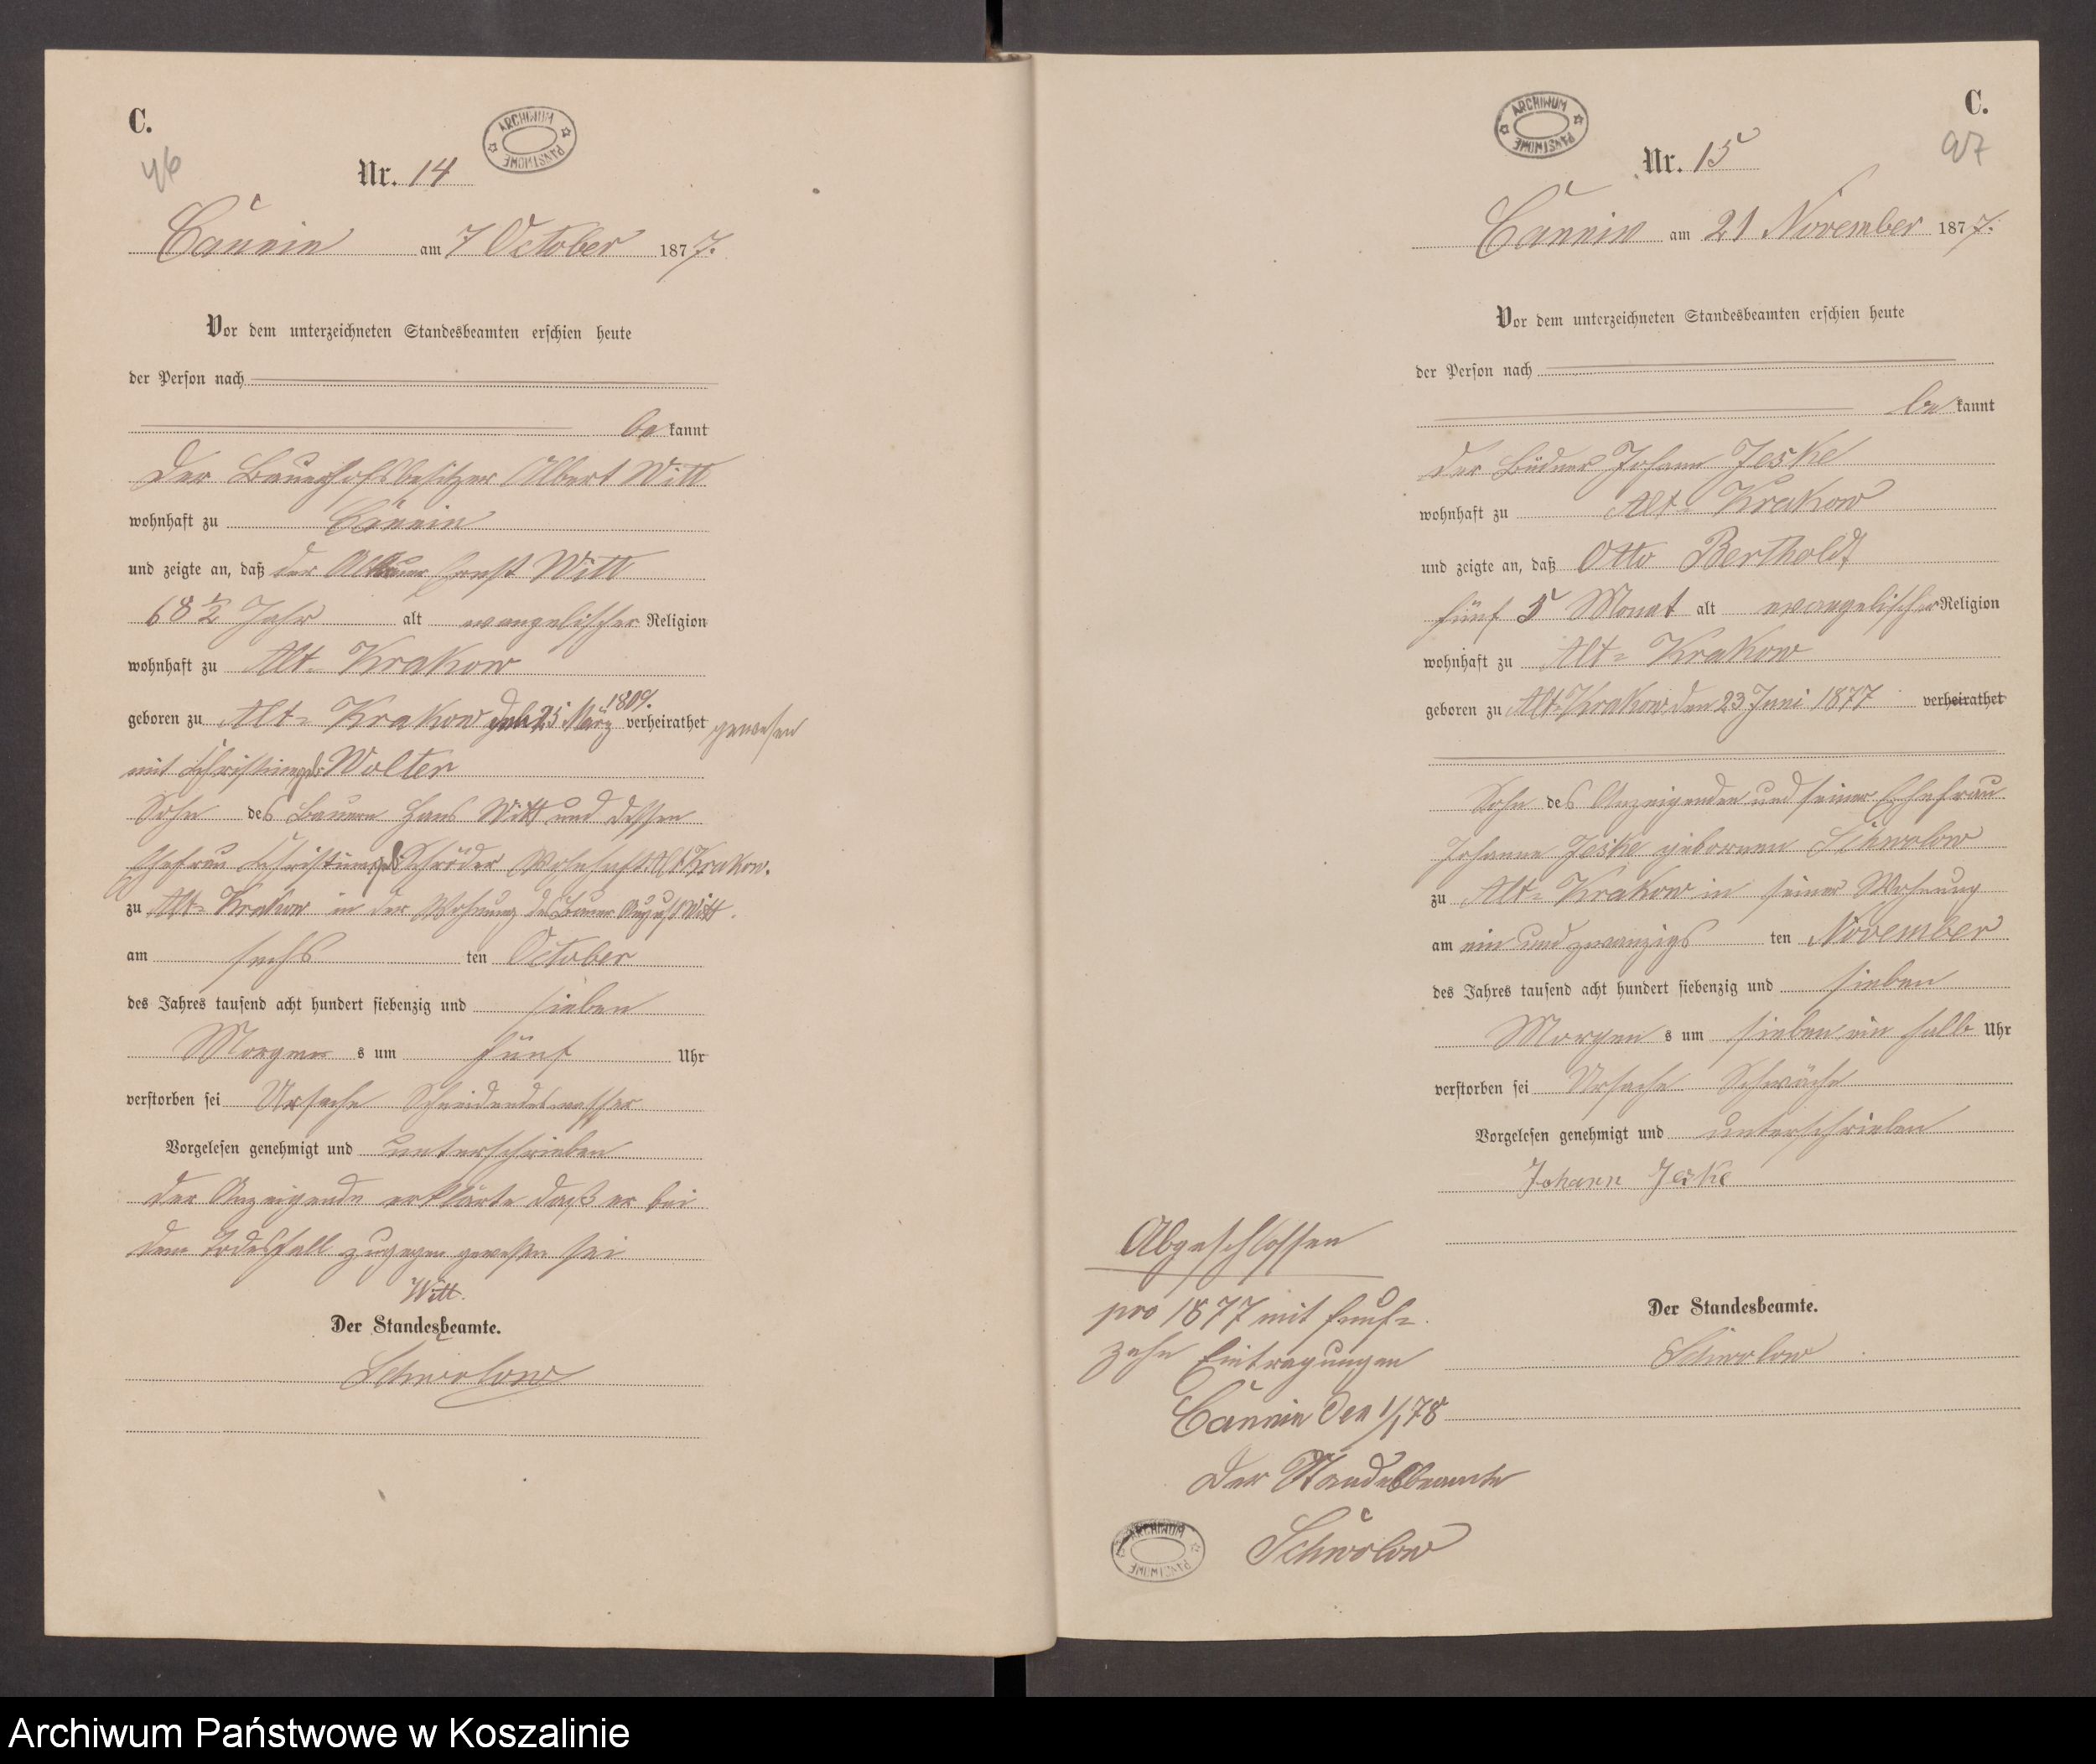 C.
46
Nr. 14
ARCHIWUM PAŃSTWOWE
Cannin am 7 October 1877.
Vor dem unterzeichneten Standesbeamten erschien heute
der Person nach
be kannt
Der Bauerhofsbesitzer Albert Witt
wohnhaft zu Cannin
und zeigte an, daß der Altbauer Ernst Witt
68 1/2 Jahr alt evangelischer Religion
wohnhaft zu Alt- Krakow
geboren zu Alt- Krakow den 25 März 1809. verheirathet gewesen
mit Christine geb Wolter
Sohn des Bauern Hans Witt und dessen
Ehefrau Christine geb Schröder Wohnhaft Alt Krakow.
zu Alt- Krakow in der Wohnung des Bauer August Witt.
am sechs ten October
des Jahres tausend acht hundert siebenzig und sieben
Morgen s um fünf Uhr
verstorben sei Ursache
Vorgelesen genehmigt und unterschrieben
der Anzeigende erklärte daß er bei
dem Todesfall zugegen gewesen sei
Witt.
Der Standesbeamte.
Schwolow
C.
97
Nr. 15
ARCHIWUM PAŃSTWOWE
Cannin am 21 November 1877.
Vor dem unterzeichneten Standesbeamten erschien heute
der Person nach
be kannt
der Büdner Johann Jeske
wohnhaft zu Alt- Krakow
und zeigte an, daß Otto Berthold
fünf 5 Monat alt evangelischer Religion
wohnhaft zu Alt- Krakow
geboren zu Alt-Krakow den 23 Juni 1877 verheirathet
Sohn des Anzeigenden und seiner Ehefrau
Johanne Jeske gebornen Schwolow
zu Alt- Krakow in seiner Wohnung
am ein und zwanzigs ten November
des Jahres tausend acht hundert siebenzig und sieben
Morgen s um sieben ein halb Uhr
verstorben sei Ursache Schwäche
Vorgelesen genehmigt und unterschrieben
Johann Jeske
Der Standesbeamte.
Schwolow
Abgeschlossen
pro 1877 mit funf-
zehn Eintragungen
Cannin den 1/1 78
Der Standesbeamte
Schwolow
ARCHIWUM PAŃSTWOWE
Archiwum Państwowe w Koszalinie